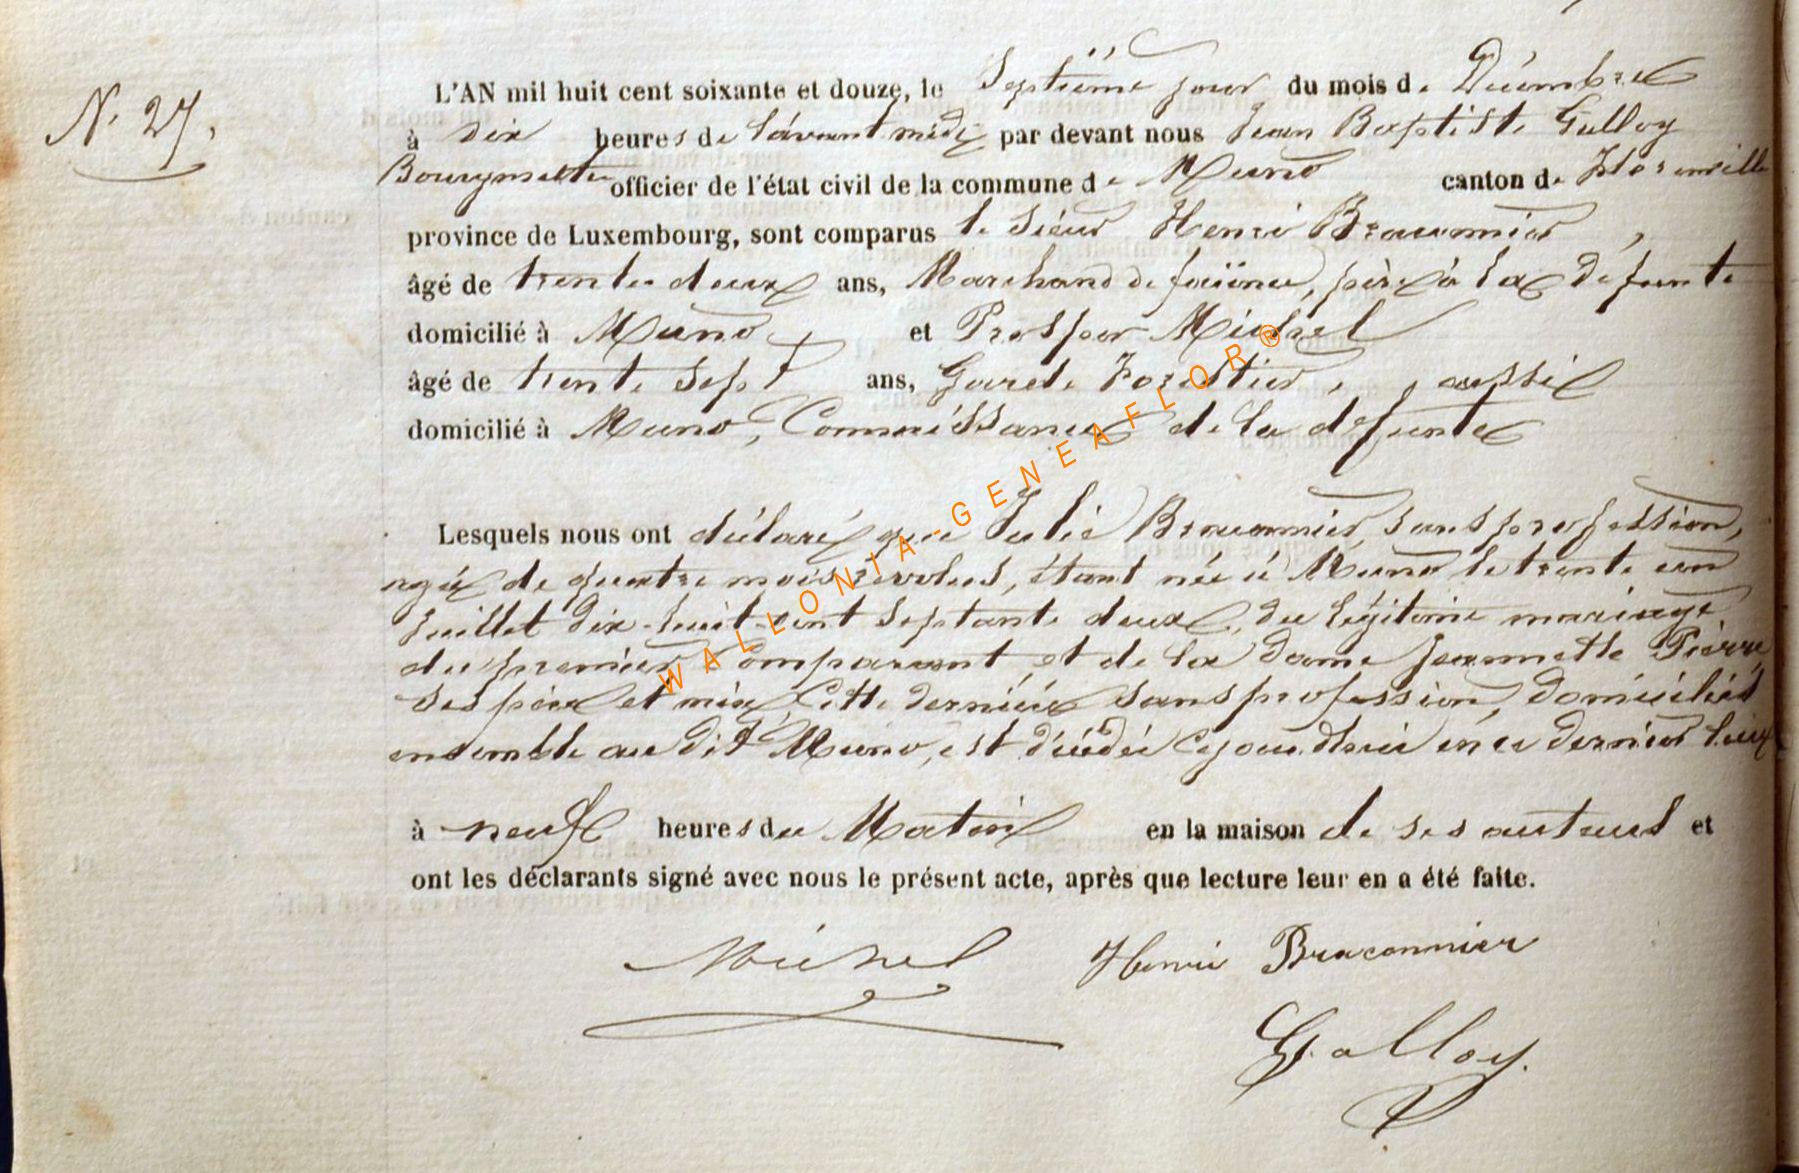 N. 27,
L'AN mil huit cent soixante et douze, le Septième jour du mois de Décembre
à dix heures de l'avant midi par devant nous Jean Baptiste Galloy
Bourgmestre officier de l'état civil de la commune de Muno canton de Florenville
province de Luxembourg, sont comparus le Sieur Henri Braconnier,
âgé de trente deux ans, Marchand de faïence, père à la défunte
domicilié à Muno, et Prosper Michel
âgé de trente sept ans, Garde Forestier, , aussi
domicilié à Muno, Connaissance de la défunte
Lesquels nous ont déclaré que Julie Braconnier, sans profession,
agée de quatre mois révolus, étant née à Muno le trente un
Juillet dix-huit-cent septante deux, du légitime mariage
du premier Comparant et de la Dame Jeannette Pierre
ses père et mère, Cette dernière sans profession, domiciliés
ensemble au dit Muno, est décédée cejourd'hui en ce dernier lieu
à neuf heures du Matin en la maison de ses auteurs et
ont les déclarants signé avec nous le présent acte, après que lecture leur en a été faite.
Michel Henri Braconnier
Galloy.
WALLONIA-GENEAFLOR®